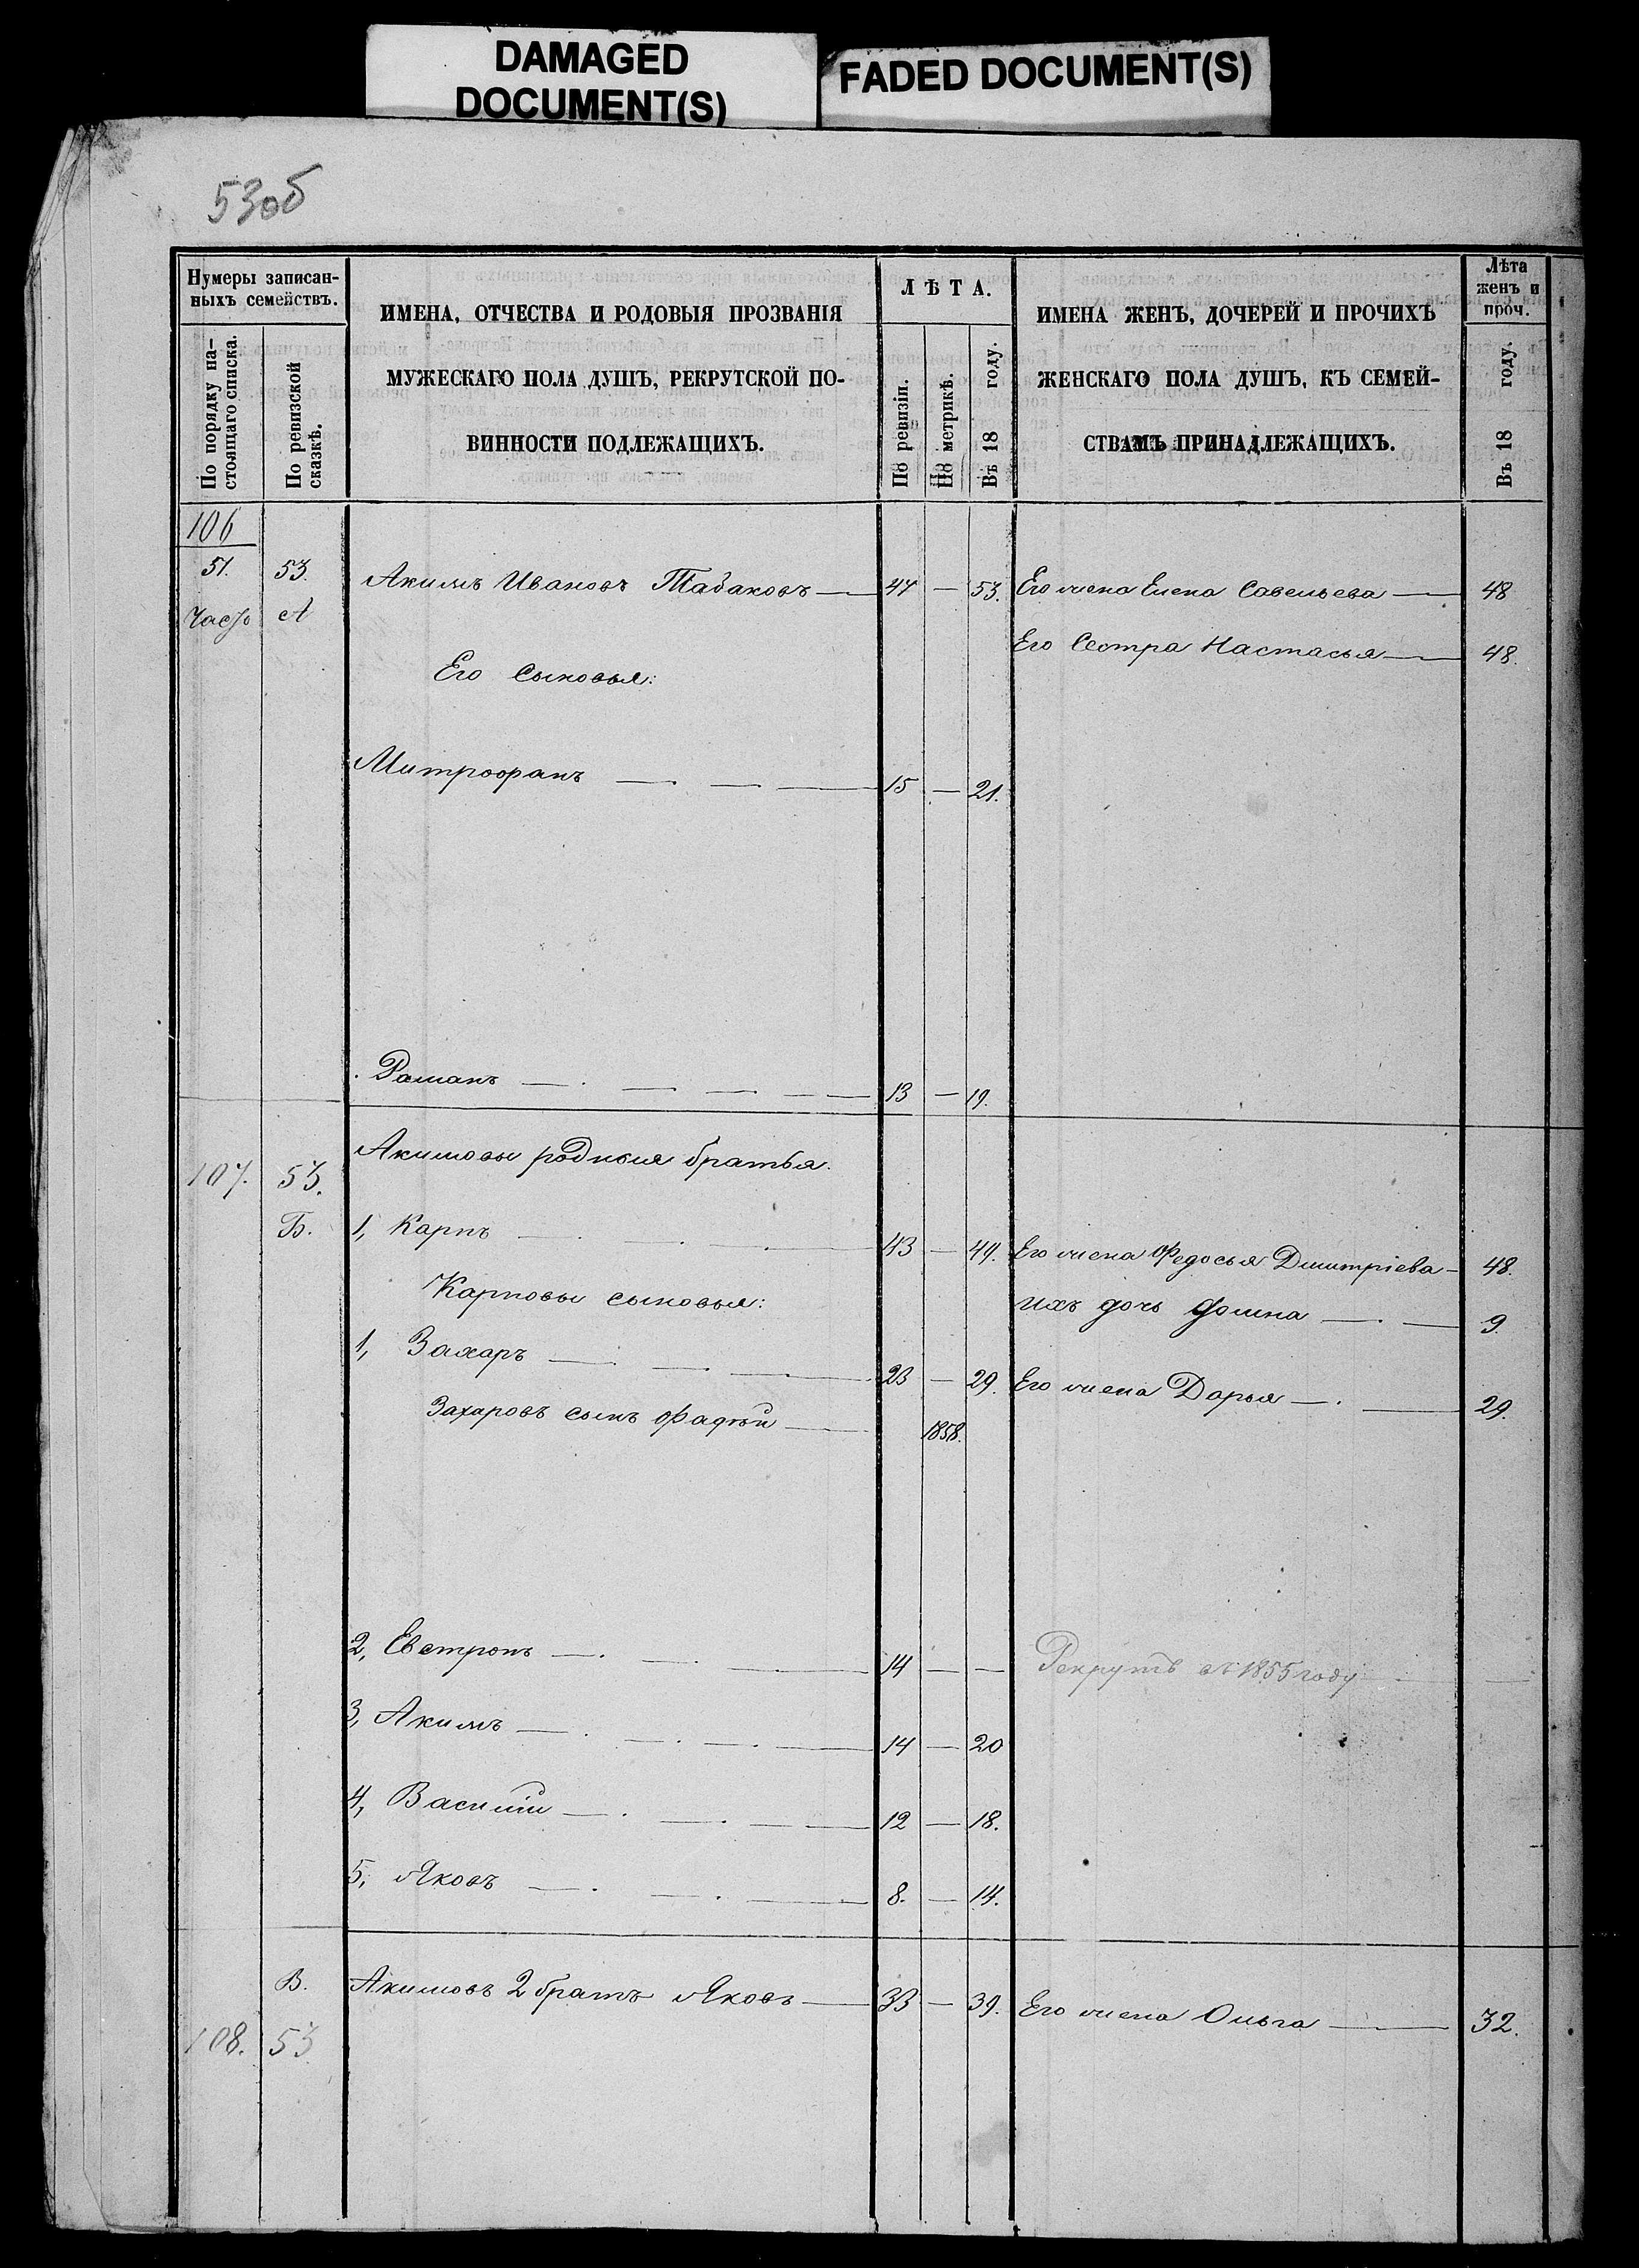 DAMAGED
DOCUMENT(S)
FADED DOCUMENT(S)
53об
Нумеры записан-
ныхъ семействъ.
По порядку на-
стоящаго списка.
По ревизской
сказкѣ.
ИМЕНА, ОТЧЕСТВА И РОДОВЫЯ ПРОЗВАНІЯ
МУЖЕСКАГО ПОЛА ДУШЪ, РЕКРУТСКОЙ ПО-
ВИННОСТИ ПОДЛЕЖАЩИХЪ.
ЛѢТА.
По ревизіи.
По метрикѣ.
Въ 18 году.
ИМЕНА ЖЕНЪ, ДОЧЕРЕЙ И ПРОЧИХЪ
ЖЕНСКАГО ПОЛА ДУШЪ, КЪ СЕМЕЙ-
СТВАМЪ ПРИНАДЛЕЖАЩИХЪ.
Лѣта
женъ и
проч.
Въ 18 году.
106
51. 53. Акимъ Ивановъ Табаковъ — 47 — 53. Его жена Елена Савельева — 48
Часть А
Его Сестра Настасья — 48.
Его Сыновья:
Митрофанъ — 15 — 21.
Романъ — 13 — 19.
Акимовы родныя братья.
107. 53.
Б. 1, Карпъ — 43 — 49. Его жена Федосья Дмитріева — 48.
Карповы сыновья: Ихъ дочь Фомина — 9.
1, Захаръ — 23 — 29. Его жена Дарья — 29.
Захаровъ сынъ Фадѣй — 1858.
2, Евстропъ — 14 — — Рекрутъ въ 1855 году —
3, Акимъ — 14 — 20
4, Василій — 12 — 18.
5, Яковъ — 8. — 14.
В. Акимовъ 2 братъ Яковъ — 33 — 39. Его жена Ольга — 32.
108. 53